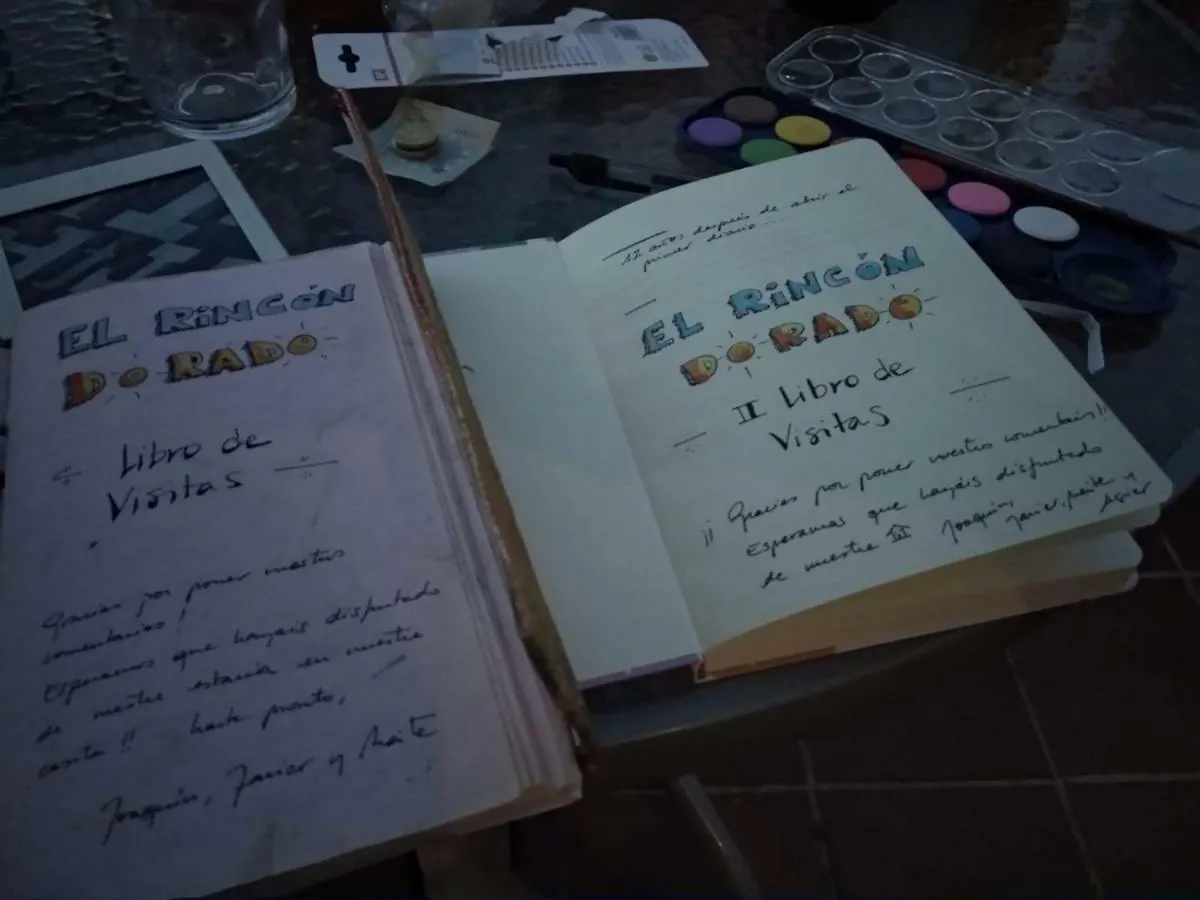 EL RINCÓN
DORADO
Libro de
Visitas
Gracias por poner vuestros
comentarios!
Esperamos que hayais disfrutado
de vuestra estancia en nuestra
casita!! hasta pronto,
Joaquín, Javier y Maite
12 años después de abrir el
primer diario...
EL RINCÓN
DORADO
II Libro de
Visitas
¡¡ Gracias por poner vuestros comentarios!!
Esperamos que hayáis disfrutado
de nuestra
Joaquín,
Javier, Maite y
Asier